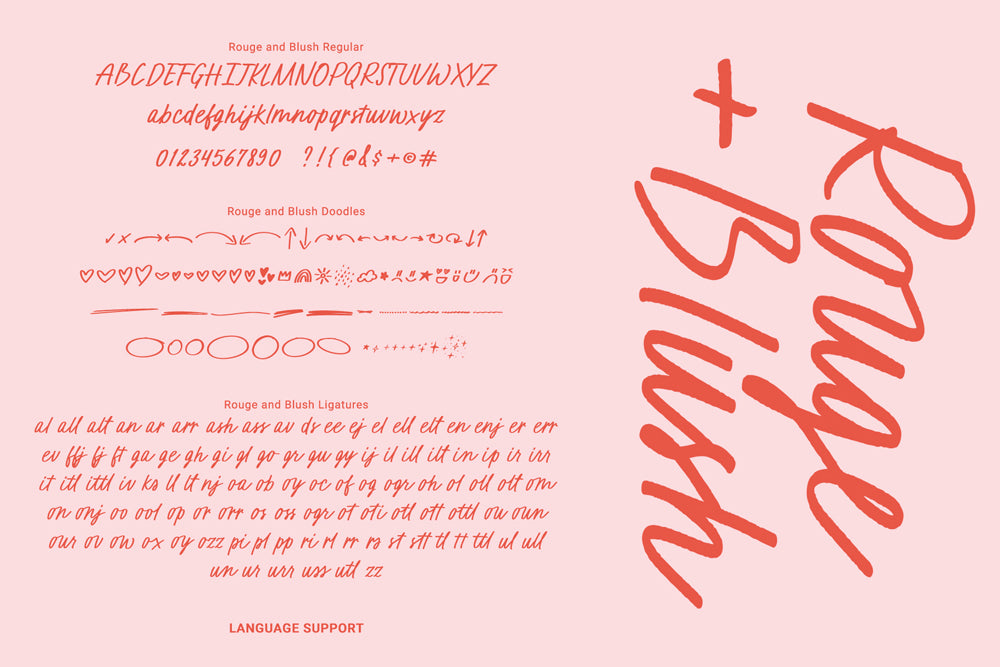 Rouge and Blush Regular
ABCDEFGHIJKLMNOPQRSTUVWXYZ
abcdefghijklmnopqrstuvwxyz
01234567890 ?!{@&$+©#
Rouge and Blush Doodles
Rouge and Blush Ligatures
al all alt an ar arr ash ass av ds ee ej el ell elt en enj er err
ev ffj fj ft ga ge gh gi gl go gr gu gy ij il ill ilt in ip ir irr
it itl ittl iv ks ll lt nj oa ob oy oc of og ogr oh ol oll olt om
on onj oo ool op or orr os oss ogr ot oti otl ott ottl ou oun
our ov ow ox oy ozz pi pl pp ri rl rr rs st stt tl tt ttl ul ull
un ur urr uss utl zz
LANGUAGE SUPPORT
Rouge
+ Blush